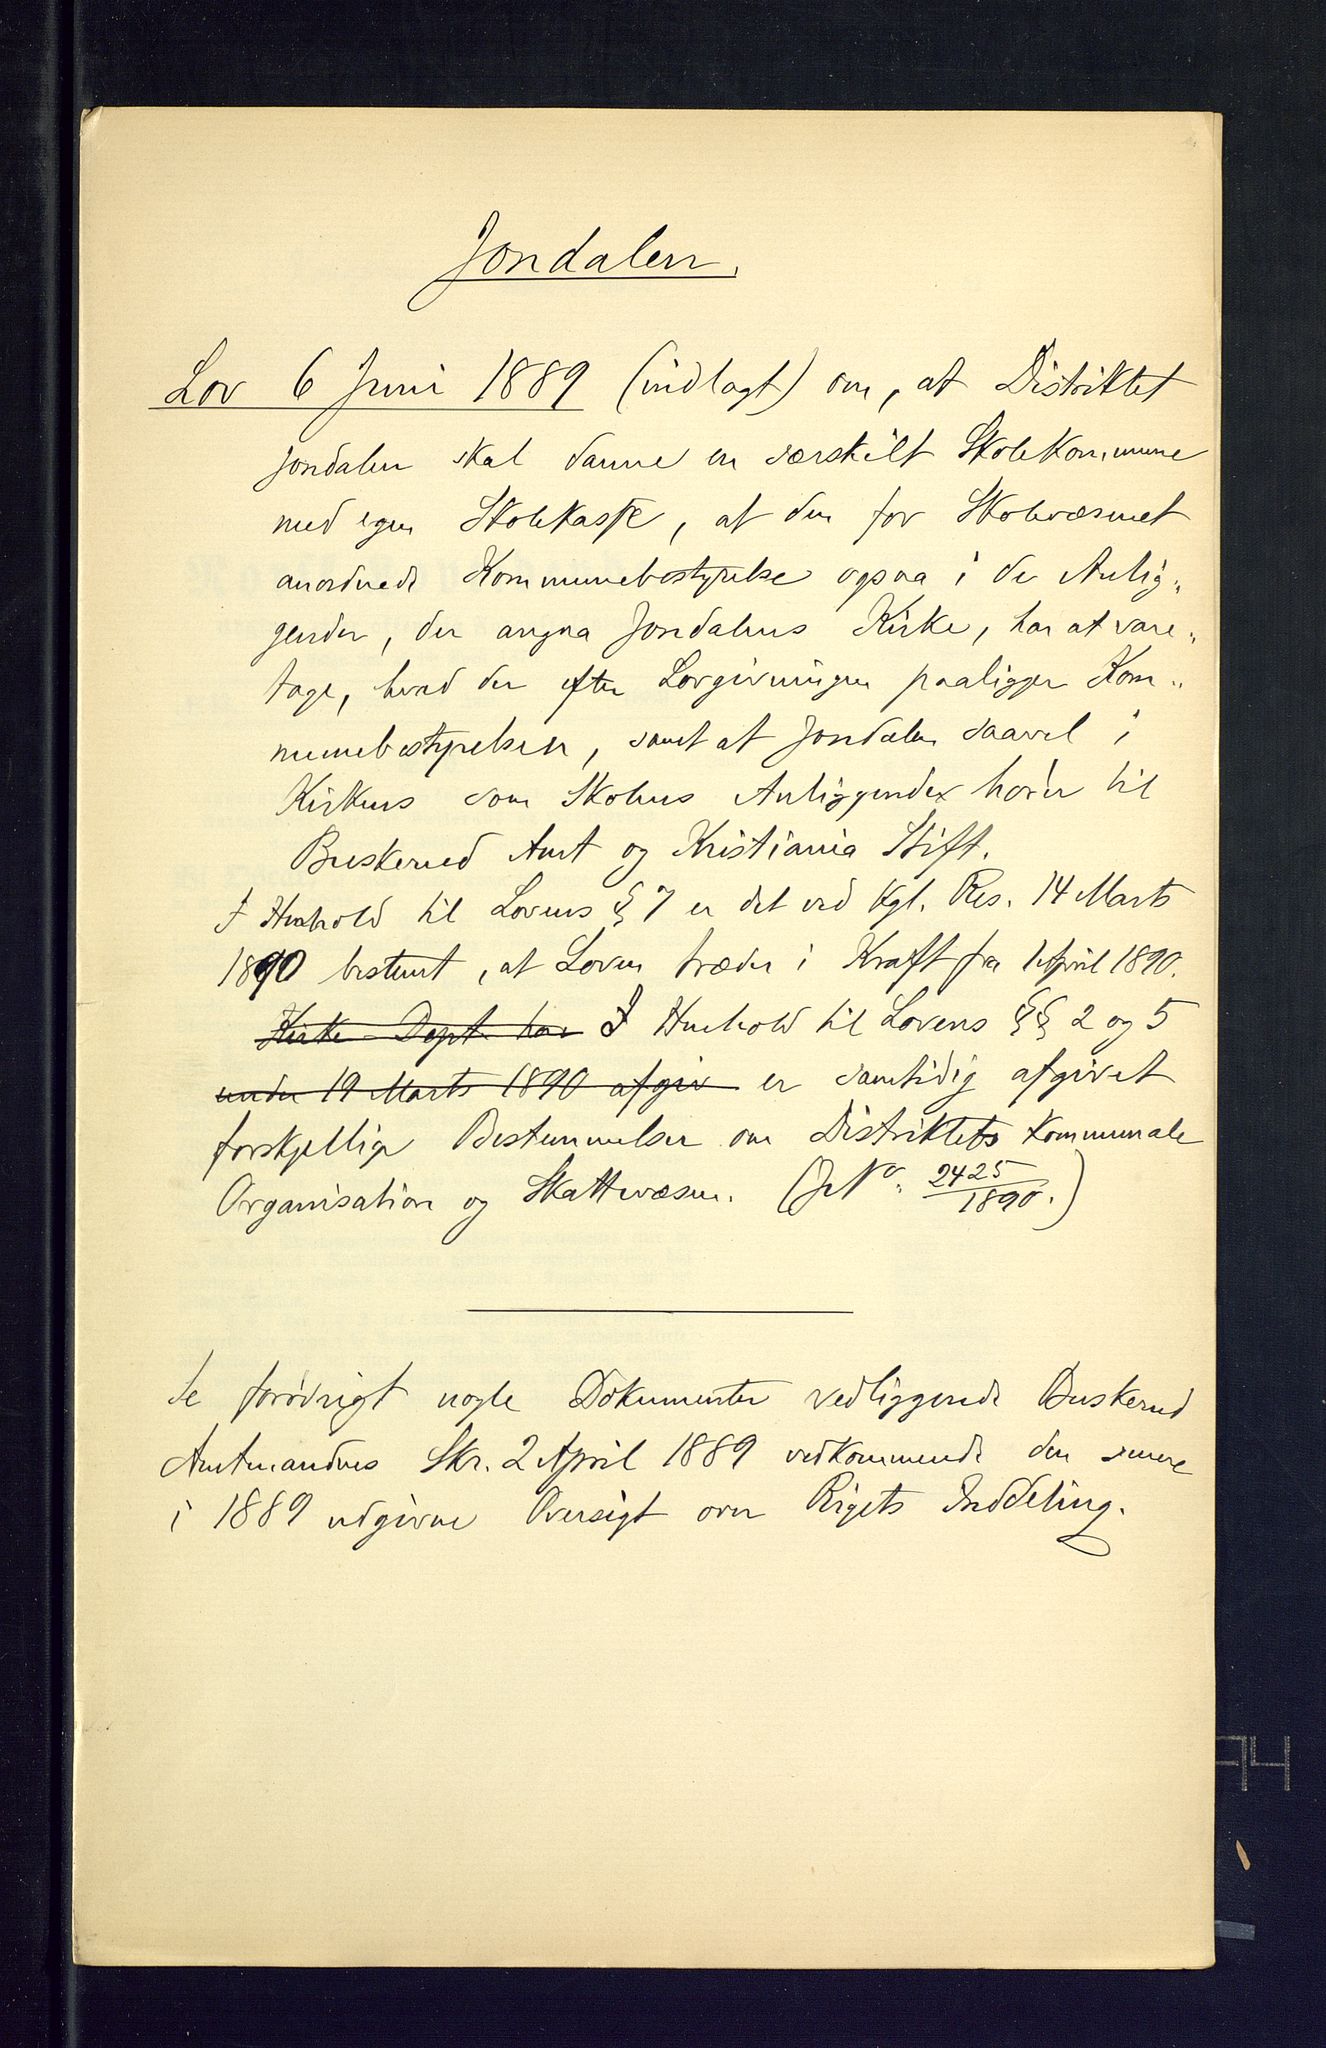 Jondalen.
Lov 6 Juni 1889 (indlagt) om, at Distriktet
Jondalen skal danne en særskilt Skolekommune
med egen Skolekasse, at den for Skolevæsenet
anordnede Kommunebestyrelse ogsaa i de Anlig-
gender, der angaa Jondalens Kirke, har at vare-
tage, hvad der efter Lovgivningen paaligger Kom-
munebestyrelsen, samt at Jondalen saavel i
Kirkens som Skolens Anliggender hører til
Buskerud Amt og Kristiania Stift.
I Henhold til Lovens § 7 er det ved Kgl. Res. 14 Marts
1890 bestemt, at Loven træder i Kraft fra 1 April 1890.
Kirke-Dept. har I Henhold til Lovens §§ 2 og 5
under 19 Marts 1890 afgiv er samtidig afgivet
forskjellige Bestemmelser om Distriktets kommunale
Organisation og Skattevæsen. (J No. 2425/1890.)
Se forøvrigt nogle Dokumenter vedliggende Buskerud
Amtmandens Skr. 2 April 1889 vedkommende den senere
i 1889 udgivne Oversigt over Rigets Inddeling.